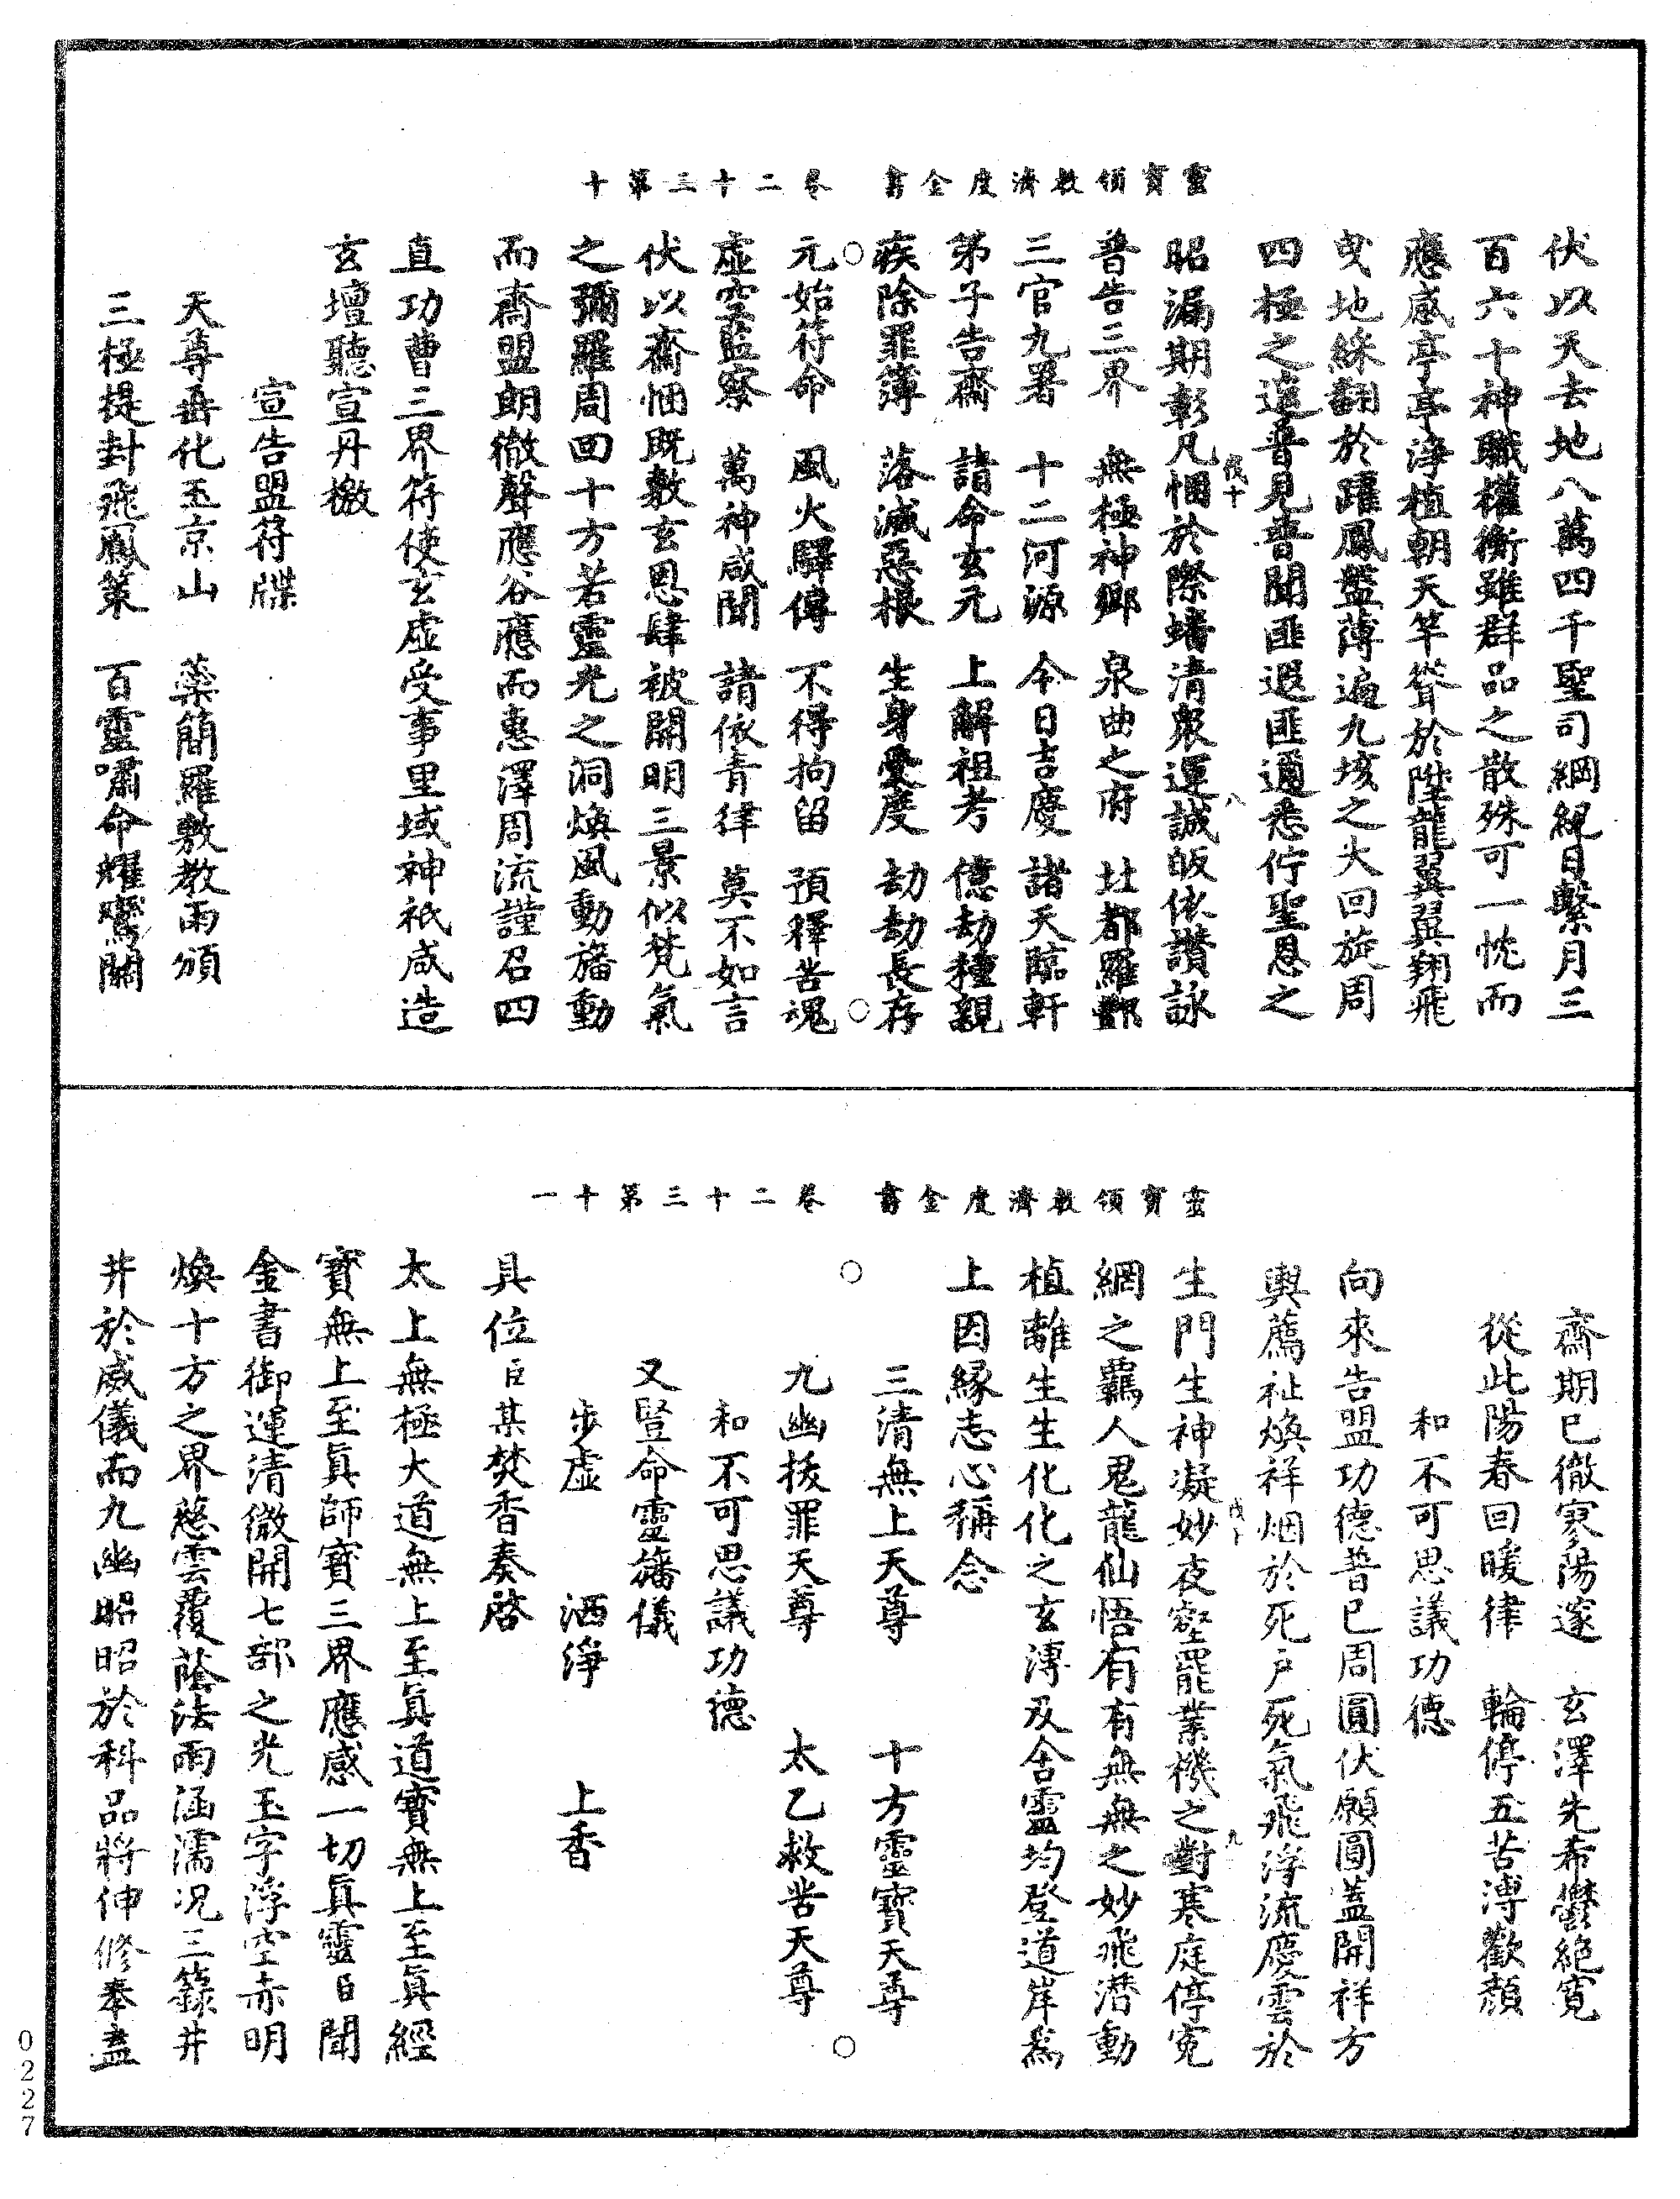 靈寶領教濟度金書　卷二十三第十
伏以天去地八萬四千聖司綱紀日繫月三
百六十神職權衡雖群品之散殊可一恍而
應感亭亭淨植朝天竿聳於陛龍翼翼翔飛
曳地綵翻於躍鳳盤薄遍九垓之大回旋周
四極之遥普見普聞匪遐匪邇悉佇聖恩之
昭漏期彰凡悃於際蟠清衆運誠皈依讚詠
普告三界　無極神鄉　泉曲之府　北都羅酆
三官九署　十二河源　今日吉慶　諸天臨軒
弟子告齋　諸命玄元　上解祖考　億劫種親
疾除罪簿　落滅惡根　生身受度　劫劫長存
元始符命　風火驛傳　不得拘留　預釋苦魂
虛空監察　萬神咸聞　諸依青律　莫不如言
伏以齋悃既敷玄恩肆被開明三景似梵氣
之彌羅周回十方若靈光之洞煥風動旛動
而齋盟朗徹聲應谷應而惠澤周流謹召四
直功曹三界符使玄虛受事里域神祇咸造
玄壇聽宣丹檄
宣告盟符牒
天尊垂化玉京山　蘂簡羅敷教雨頒
三極提封飛鳳策　百靈嘯命耀鸞關
靈寶領教濟度金書　卷二十三第十一
齋期已徹寥陽邃　玄澤先希鬱絶寬
從此陽春回暖律　輪停五苦溥歡顏
和不可思議功德
向來告盟功德普已周圓伏願圓蓋開祥方
輿薦祉煥祥烟於死户死氣飛浮流慶雲於
生門生神凝妙夜壑罷業機之對寒庭停寃
網之羈人鬼龍仙悟有有無無之妙飛潛動
植離生生化化之玄溥及含靈均登道岸爲
上因緣志心稱念
三清無上天尊　十方靈寶天尊
九幽拔罪天尊　太乙救苦天尊
和不可思議功德
又豎命靈旛儀
步虛　洒淨　上香
具位臣某焚香奏啓
太上無極大道無上至眞道寶無上至眞經
寶無上至眞師寶三界應感一切眞靈臣聞
金書御運清微開七部之光玉字浮空赤明
煥十方之界慈雲覆蔭法雨涵濡况三籙井
井於威儀而九幽昭昭於科品將伸修奉盍
戊十
八
戊十
九
0227